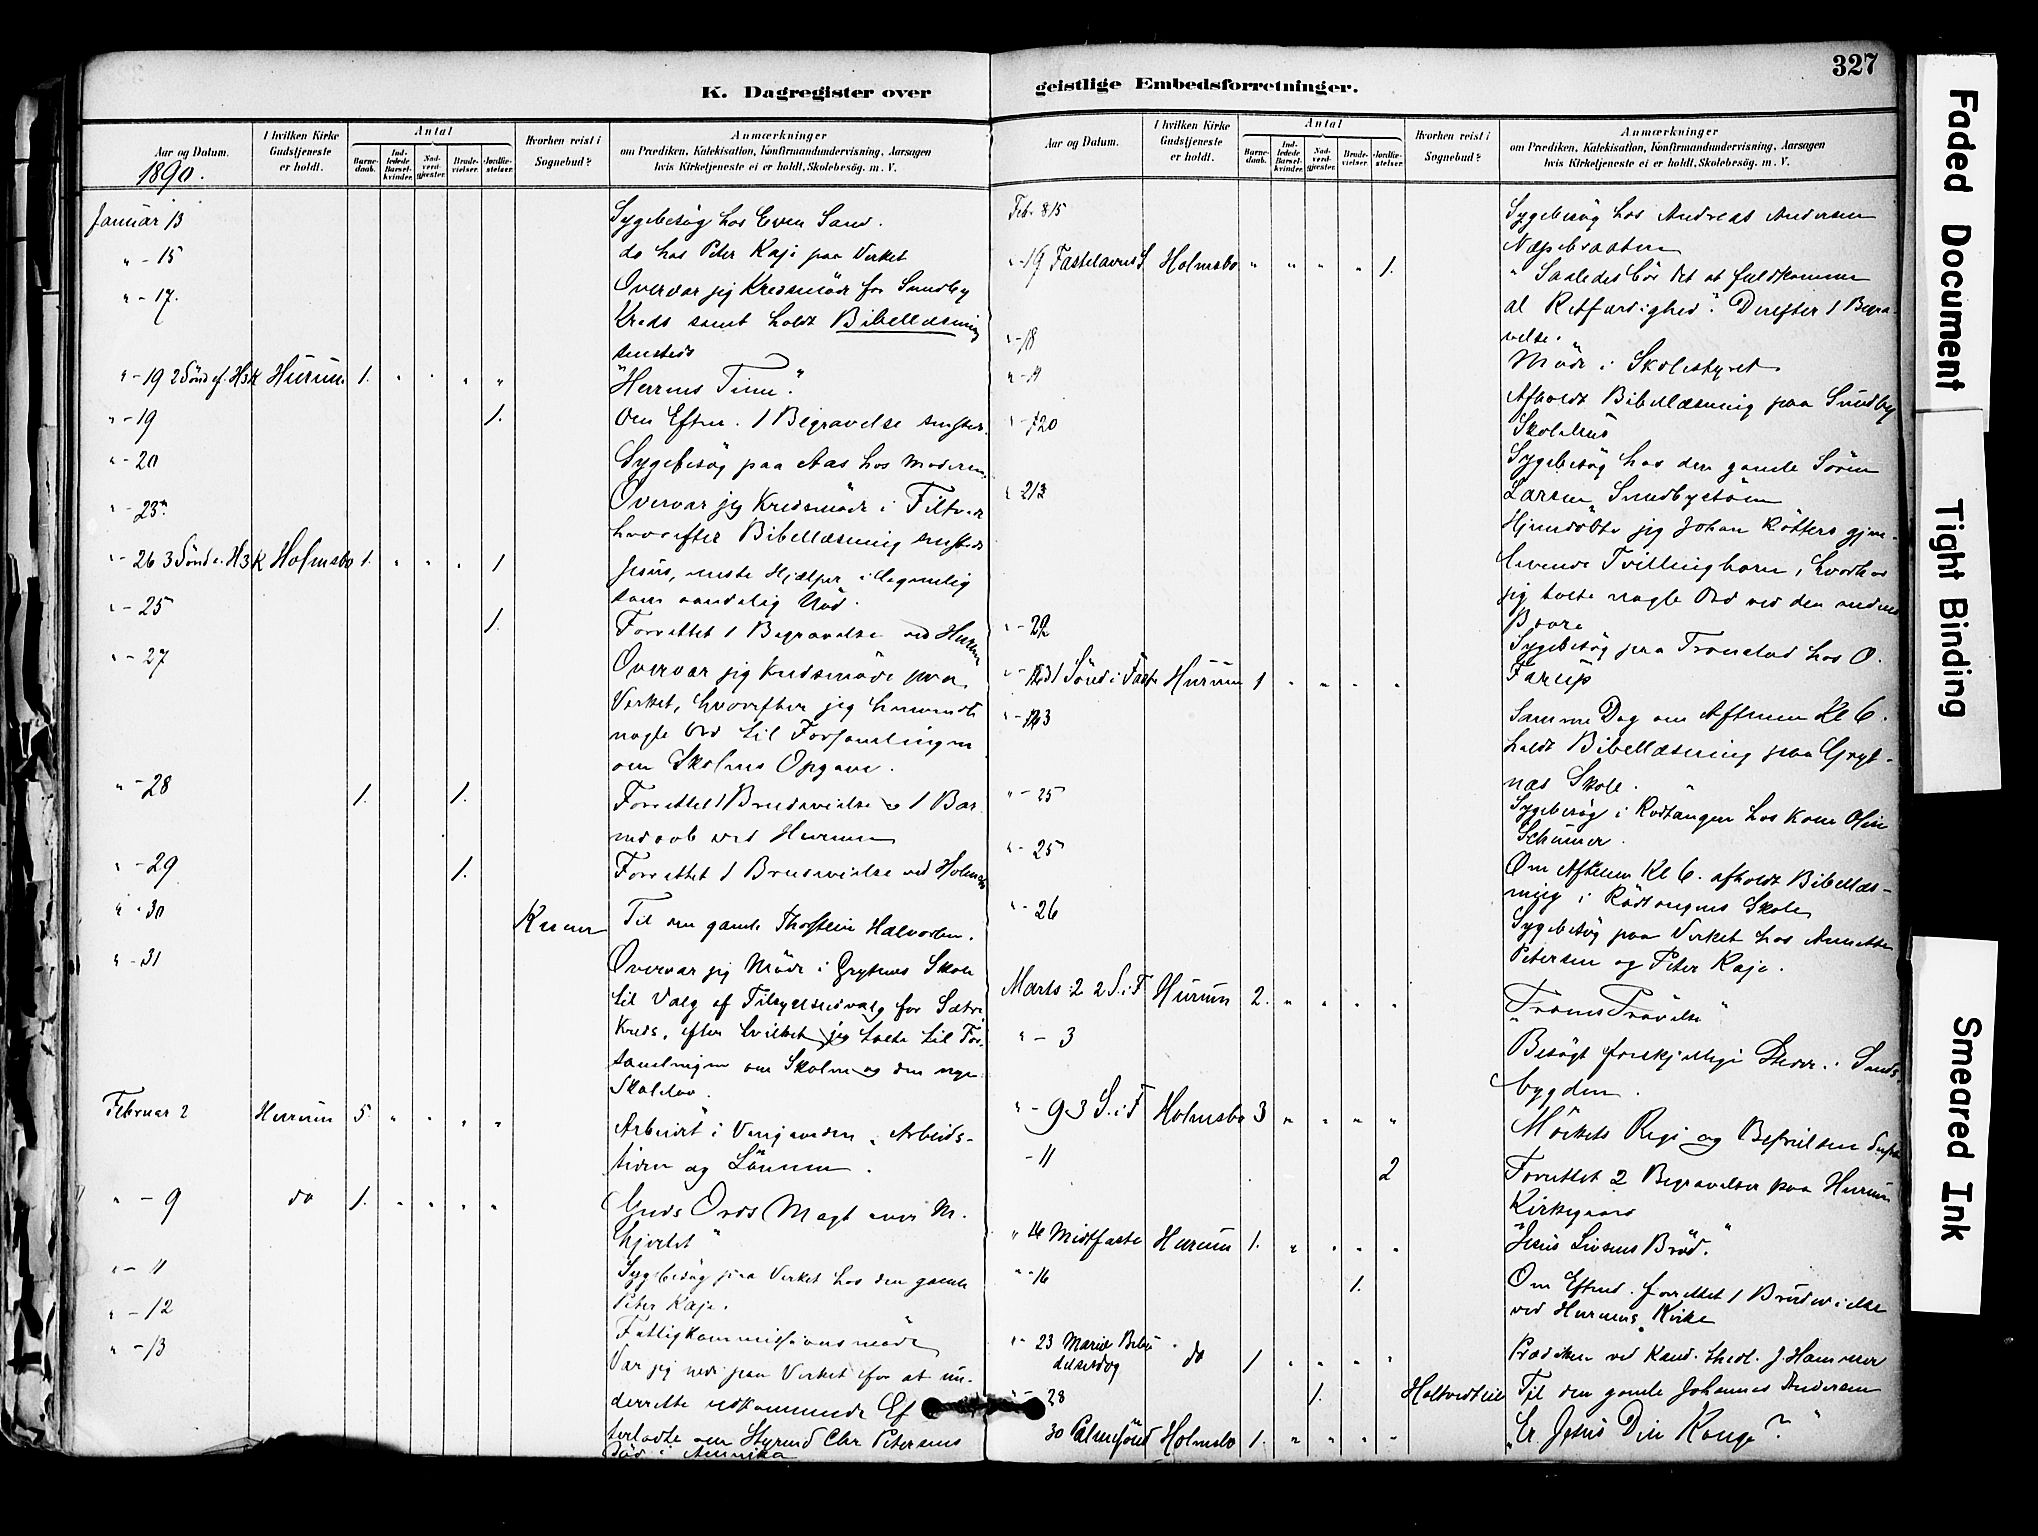 327
K. Dagregister over
geistlige Embedsforretninger.
Aar og Datum.
I hvilken Kirke Gudstjeneste er holdt.
Antal
Barnedaab.
Indledede Barselkvinder.
Nadverdgjester.
Brudevielser.
Jordfæstelser.
Hvorhen reist i Sognebud?
Anmærkninger
om Prædiken, Katekisation, Konfirmandundervisning, Aarsagen
hvis Kirketjeneste ei er holdt, Skolebesög. m. V.
1890.
Januar 13 Sygebesøg hos Even Sand.
" - 15 do hos Peter Kaje paa Verket
" - 17. Overvar jeg Kredsmøde for Sundby
Kreds samt holdt Bibellæsning
sammesteds
" - 19 2 Sönd ef. H3K Hurum 1. " " " " "Herrens Time."
" - 19 1. Om Efterm. 1 Begravelse
" - 20 Sygebesøg paa Aas hos Moderen
" - 23 Overvar jeg Kredsmøde i Filtvet
hvorefter Bibellæsning
" - 26 3 Sönd e. H3K Holmsbo 1. " " " 1 Jesus, eneste Hjælper i legemlig
som aandelig Nød.
" - 25 1. Forrettet 1 Begravelse ved Hurum
" - 27 Overvar jeg Kredsmøde paa
Verket, hvorefter jeg henvendte
nogle Ord til Forsamlingen
om Skolens Opgave.
" - 28 1. 1. Forrettet 1 Brudevielse o 1 Bar
nedaab ved Hurum
" - 29 1. Forrettet 1 Brudevielse ved Holmsbo
" - 30 Til den gamle Thorstein Halvorsen.
" - 31 Overvar jeg Møde i Grytnes Skole
til Valg af Tilsynsudvalg for Sætre
Kreds, efter hvilket jeg talte til For-
samlingen om Skolen og den nye
Skolelov.
Februar 2 Hurum 5. " " " " Arbeidet i Vingaarden, Arbeids-
tiden og Lønnen.
" - 9 do 1. " " " " Guds Ords Magt over M.
hjertet"
" - 11 Sygebesøg paa Verket hos den gamle
Peter Kaje.
" - 12 Fattigkommissionsmøde
" - 13 Var jeg nede paa Verket for at un-
derrette vedkommende Ef
terladte om Styrmd Chr Petersens
Død i Amerika
Aar og Datum.
I hvilken Kirke Gudstjeneste er holdt.
Antal
Barnedaab.
Indledede Barselkvinder.
Nadverdgjester.
Brudevielser.
Jordfæstelser.
Hvorhen reist i Sognebud?
Anmærkninger
om Prædiken, Katekisation, Konfirmandundervisning, Aarsagen
hvis Kirketjeneste ei er holdt, Skolebesög. m. V.
Feb. 15 Sygebesøg hos Andreas Andersen
Fastelavns S. Holmsbo " " " " 1. "Saaledes bør det at fuldkomme
al Retfærdighed". Derefter 1 Begra-
velse.
" - 18 Møde i Skolestyret
Afholdt Bibellæsning paa Sundby
Skolehus
" - 20 Sygebesøg hos den gamle Søren
Larsen,
Hjemdøbte jeg Johan
levende Tvillingbarn, hvorhos
jeg talte nogle Ord ved den
Baare
" - 22 Sygebesøg paa Tronstad hos O.
Farup
1 Sönd i Faste Hurum 1 " " " "
" - 23 Samme Dag om Aftenen Kl 6.
holdt Bibellæsning paa Gryt-
nes Skole.
" - 25 Sygebesøg i Rødtangen hos Kone
" - 25 Om Aftenen Kl 6. afholdt Bibellæs-
ning i Rødtangens Skole
" - 26 Sygebesøg paa Verket hos Annette
Petersen og Peter Kaje.
Marts 2 2 S. i F Hurum 2. " " " " "Troens Prøvelse"
" - 3 Besøgt forskjellige Steder i Sands-
bygden.
" - 9 3 S. i F Holmsbo 3 " " " " Mørkets Rige og Befrielsen derfra
- 11 2 Forrettet 2 Begravelser paa Hurum
Kirkegaard
" 16 Midtfaste Hurum 1. " " " " "Jesus Livsens Brød."
" - 16 1. Om Efterm. forrettet 1 Brudevielse
ved Hurums Kirke
" - 23 Mariæ Bebu
delsesdag do 1 " " " " Prædiken ved Kand. theol. J. Hammer
" - 28 1. Til den gamle Johannes Andersen
30 Palmesönd Holmsbo 1. " " " " "Er Jesus Din Konge?"
Faded Document
Tight Binding
Smeared Ink